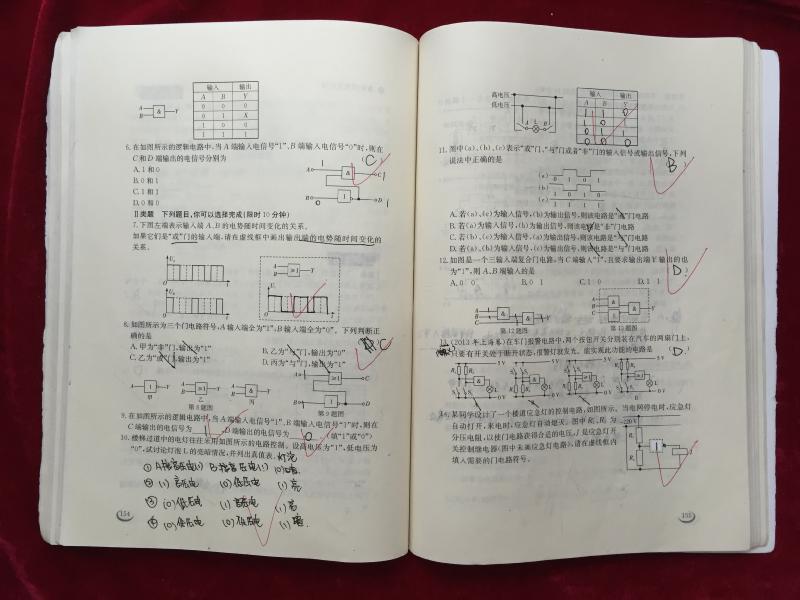 输入 输出
A B Y
0 0 0
0 1 X
1 0 0
1 1 1
A B & Y
6.在如图所示的逻辑电路中,当A端输入电信号“1”、B端输入电信号“0”时,则在
C和D端输出的电信号分别为 (C)
A.1和0
B.0和1
C.1和1
D.0和0
Ⅱ类题 下列题目,你可以选择完成(限时10分钟)
7.下图左端表示输入端A、B的电势随时间变化的关系。
如果它们是“或”门的输入端,请在虚线框中画出输出端的电势随时间变化的
关系。
8.如图所示为三个门电路符号,A输入端全为“1”,B输入端全为“0”。下列判断正
确的是 C
A.甲为“非”门,输出为“1”
B.乙为“与”门,输出为“0”
C.乙为“或”门,输出为“1”
D.丙为“与”门,输出为“1”
甲 乙 丙
第8题图 第9题图
9.在如图所示的逻辑电路中,当A端输入电信号“1”、B端输入电信号“1”时,则在
C端输出的电信号为 1 ,D端输出的电信号为 0 。(填“1”或“0”)
10.楼梯过道中的电灯往往采用如图所示的电路控制。设高电压为“1”,低电压为
“0”,试讨论灯泡L的亮暗情况,并列出真值表。
灯泡
② (1) 高压电 (0) 低压电 (1) 亮
③ (0) 低压电 (1) 高压电 (1) 亮
④ (0) 低压电 (0) 低压电
154
高电压
低电压
A L B
输入 输出
A B Y
11.图中(a)、(b)、(c)表示“或”门、“与”门或者“非”门的输入信号或输出信号,下列
说法中正确的是 (B)
(a) 0 1 0
(b) 1 0 1
(c) 0 1 1
A.若(a)、(c)为输入信号,(b)为输出信号,则该电路是“或”门电路
B.若(a)为输入信号,(b)为输出信号,则该电路是“非”门电路
C.若(b)、(c)为输入信号,(a)为输出信号,则该电路是“与”门电路
D.若(a)、(b)为输入信号,(c)为输出信号,则该电路是“与”门电路
12.如图是一个三输入端复合门电路,当C端输入“1”,且要求输出端Y输出的也
为“1”,则A、B端输入的是 (D)
A.0 0 B.0 1 C.1 0 D.1 1
第12题图 第13题图
(2013年上海卷)在车门报警电路中,两个按钮开关分别装在汽车的两扇门上,
只要有开关处于断开状态,报警灯就发光。能实现此功能的电路是 (D)
5 V 5 V 5 V 5 V
0 V 0 V 0 V 0 V
A B C D
14.某同学设计了一个楼道应急灯的控制电路,如图所示。当电网停电时,应急灯
自动打开,来电时,应急灯自动熄灭。图中R₁、R₂为
分压电阻,以使门电路获得合适的电压,J是应急灯开
关控制继电器(图中未画应急灯电路)。请在虚线框内
填入需要的门电路符号。
~220 V
155